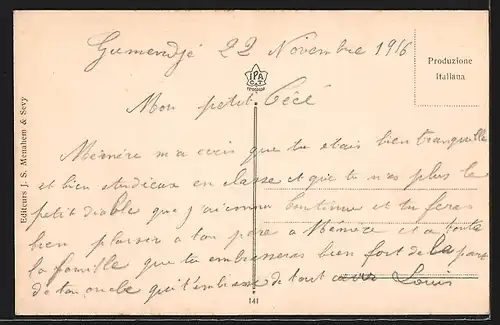 Gumendjé 22 Novembre 1916
IPA
CT
Produzione
Italiana
Editeurs J. S. Menahem & Sevy
Mon petit Cécé
Mémère m'a écris que tu étais bien tranquille
et bien studieux en classe et que tu n'es plus le
petit diable que j'ai connu Continue et tu feras
bien plaisir a ton père a Mémère et a toute
la famille que tu embrasseras bien fort de la part
de ton oncle qui t'embrasse de tout Louis
141